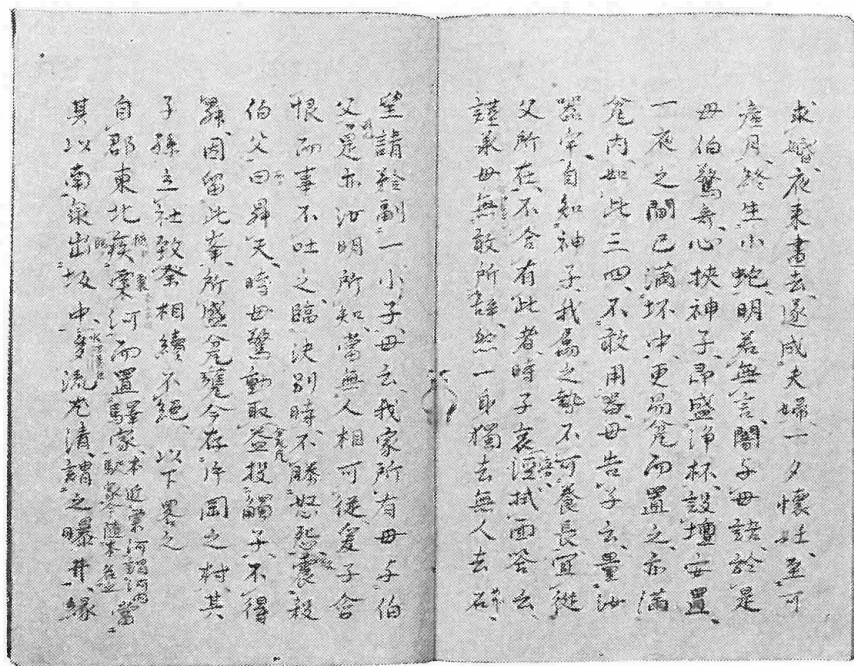 求婚夜来晝去遂成夫婦一夕懐妊至可
産月終生小蛇明若無言闇子母語於是
母伯驚奇心挟神子即盛浄杯設壇安置
一夜之間已満坏中更易瓫而置之亦満
瓫内如此三四不敢用器母告子云量汝
器宇自知神子我属之勢不可養長宜従
父所在不合有此者時子哀泣拭面答云
謹承母無敢所辞然一身獨去無人去石
望請矜副一小子母云我家所有母与伯
父是亦汝明所知當無人相可従爰子含
恨而事不吐之臨決別時不勝怒怨震殺
伯父田昇天時母驚動取盆投觸子不得
昇因留此峯所盛瓫甕今存片岡之村其
子孫立社致祭相續不絶以下畧之
自郡東北疾粟河而置驛家本近粟河謂河内驛家今隨本 當
其以南泉出坂中多流尤清謂之曝井縁